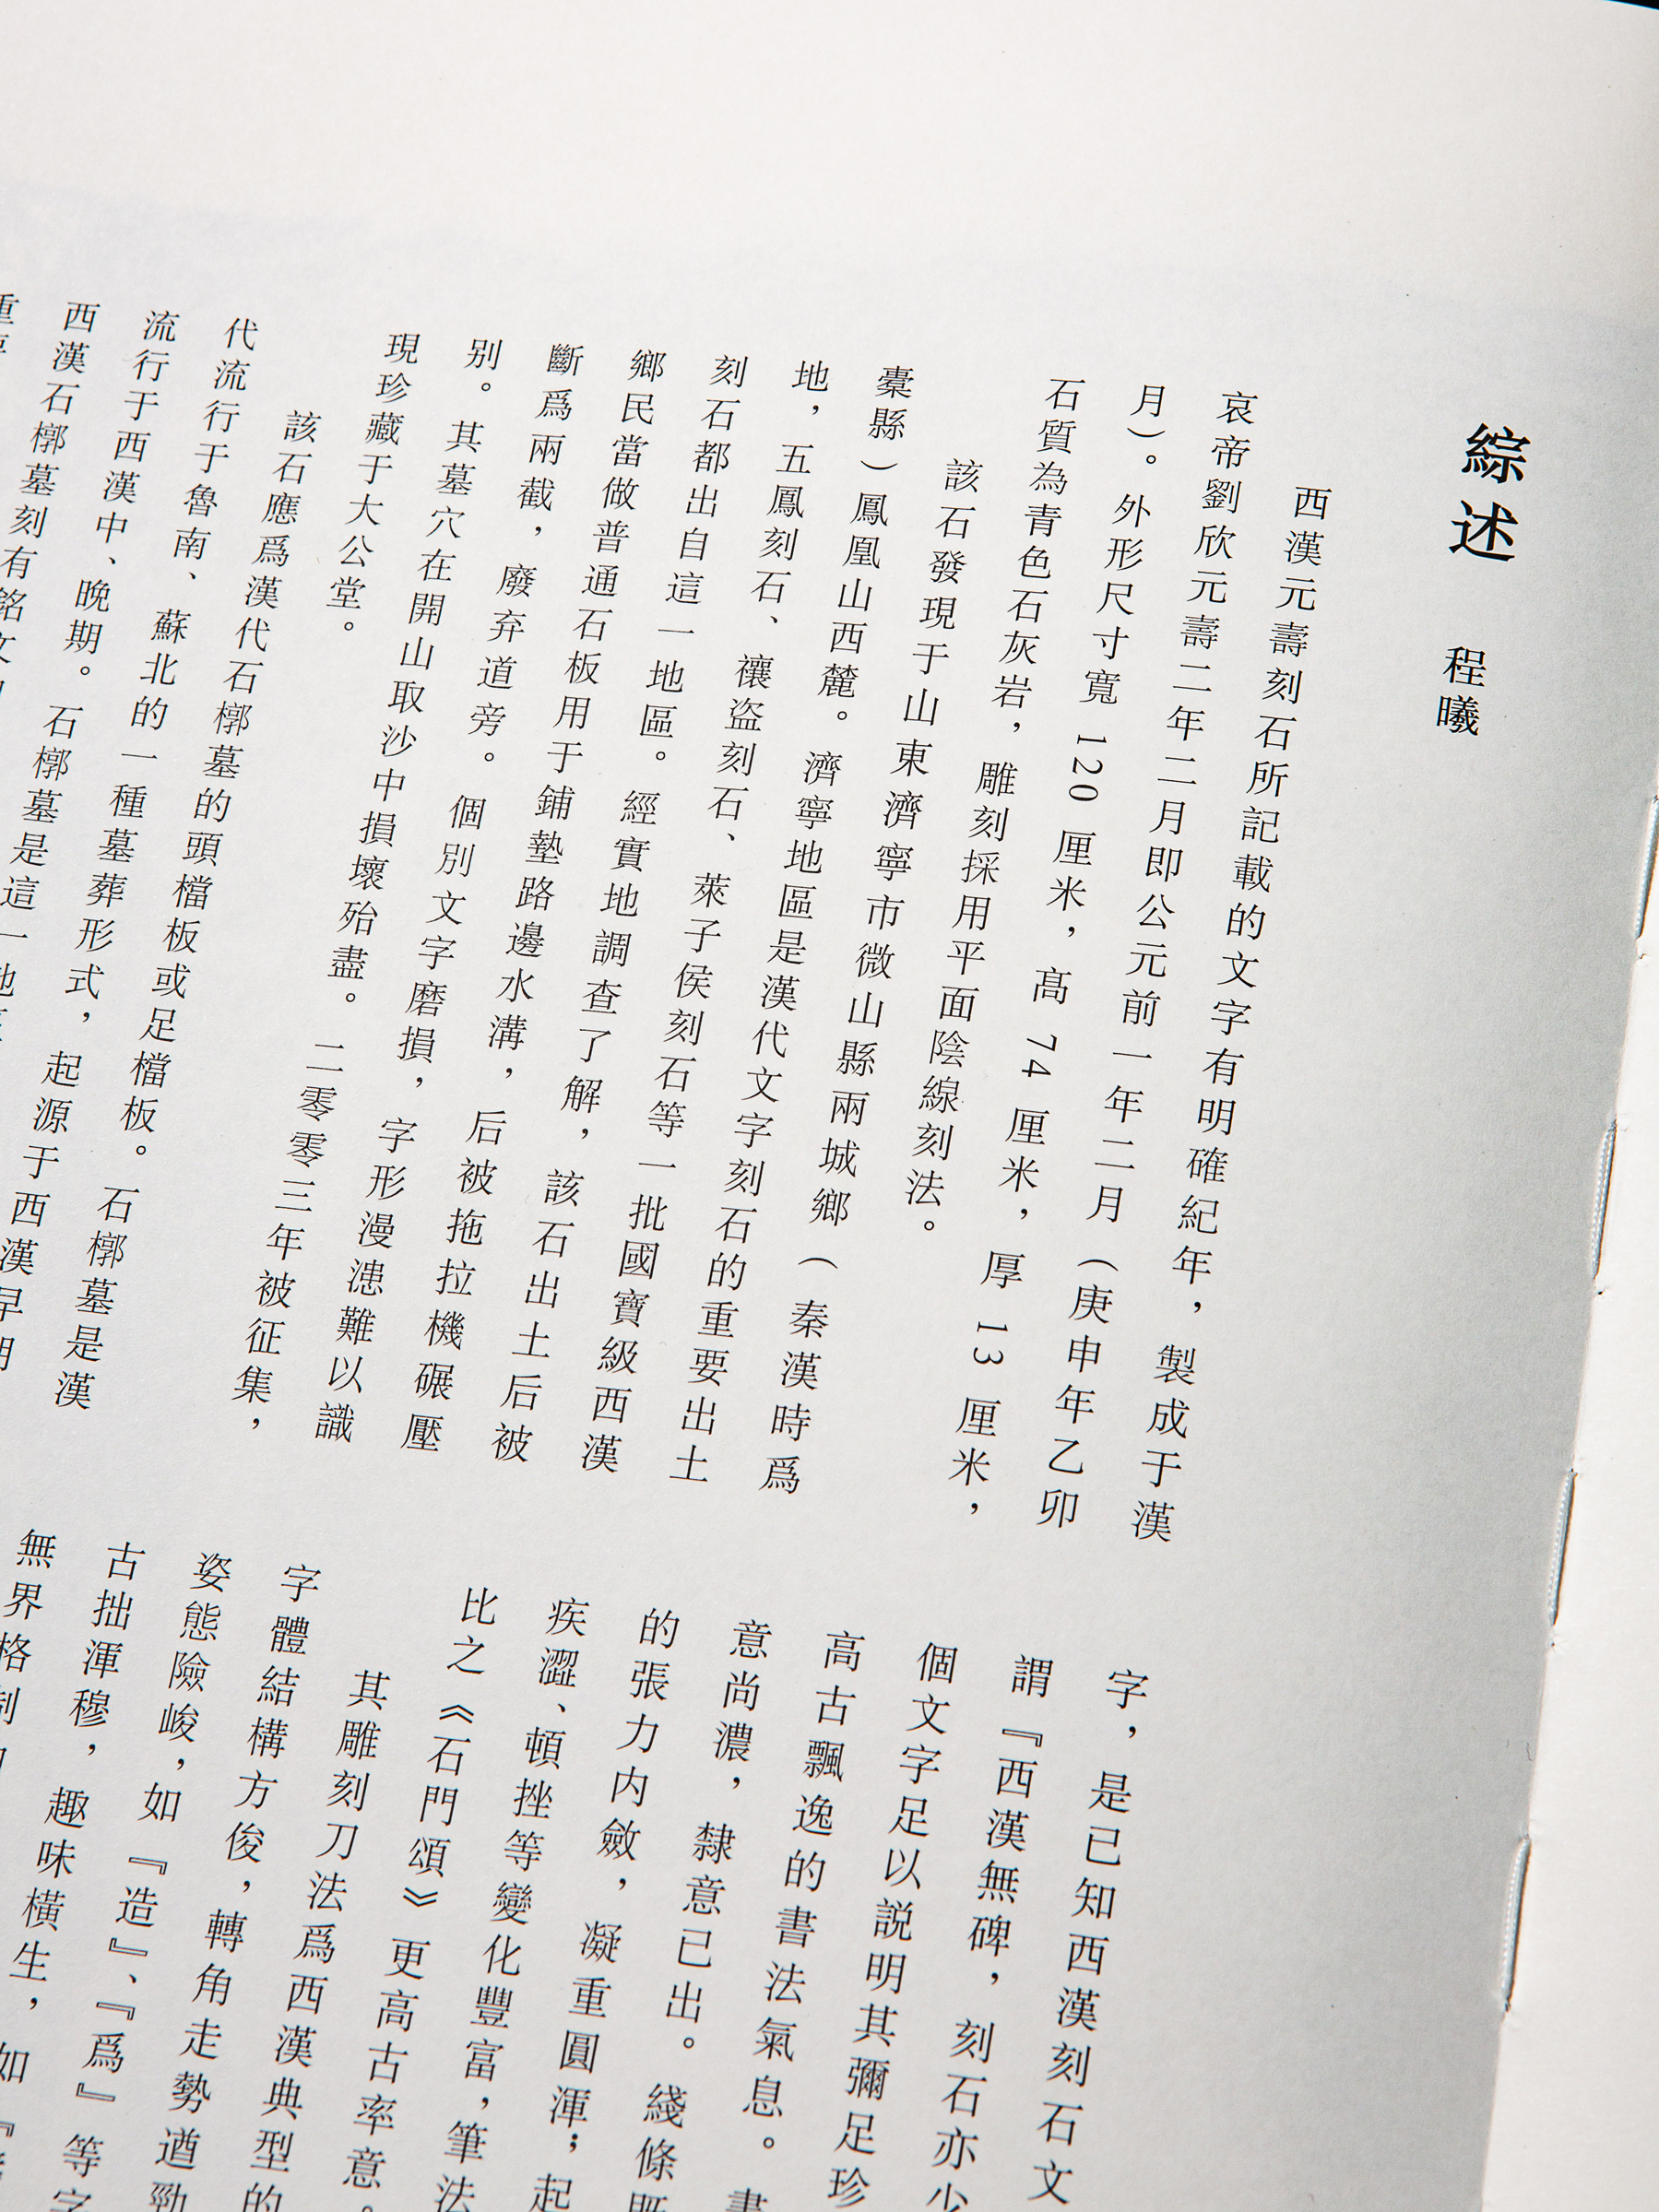 綜述 程曦
西漢元壽刻石所記載的文字有明確紀年，製成于漢
哀帝劉欣元壽二年二月即公元前一年二月（庚申年乙卯
月）。外形尺寸寬 120 厘米，髙 74 厘米，厚 13 厘米，
石質為青色石灰岩，雕刻採用平面陰線刻法。
該石發現于山東濟寧市微山縣兩城鄉（秦漢時爲
橐縣）鳳凰山西麓。濟寧地區是漢代文字刻石的重要出土
地，五鳳刻石、禳盗刻石、萊子侯刻石等一批國寶級西漢
刻石都出自這一地區。經實地調查了解，該石出土后被
鄉民當做普通石板用于鋪墊路邊水溝，后被拖拉機碾壓
斷爲兩截，廢弃道旁。個別文字磨損，字形漫漶難以識
别。其墓穴在開山取沙中損壞殆盡。二零零三年被征集，
現珍藏于大公堂。
該石應爲漢代石槨墓的頭檔板或足檔板。石槨墓是漢
代流行于魯南、蘇北的一種墓葬形式，起源于西漢早期
流行于西漢中、晚期。石槨墓是這一地
西漢石槨墓刻有銘文
重要
字，是已知西漢刻石文
謂『西漢無碑，刻石亦少
個文字足以説明其彌足珍
高古飄逸的書法氣息。書
意尚濃，隸意已出。綫條既
的張力内斂，凝重圓渾；起
疾澀、頓挫等變化豐富，筆法
比之《石門頌》更高古率意。
其雕刻刀法爲西漢典型的
字體結構方俊，轉角走勢遒勁
姿態險峻，如『造』、『爲』等字
古拙渾穆，趣味橫生，如『
無界格制